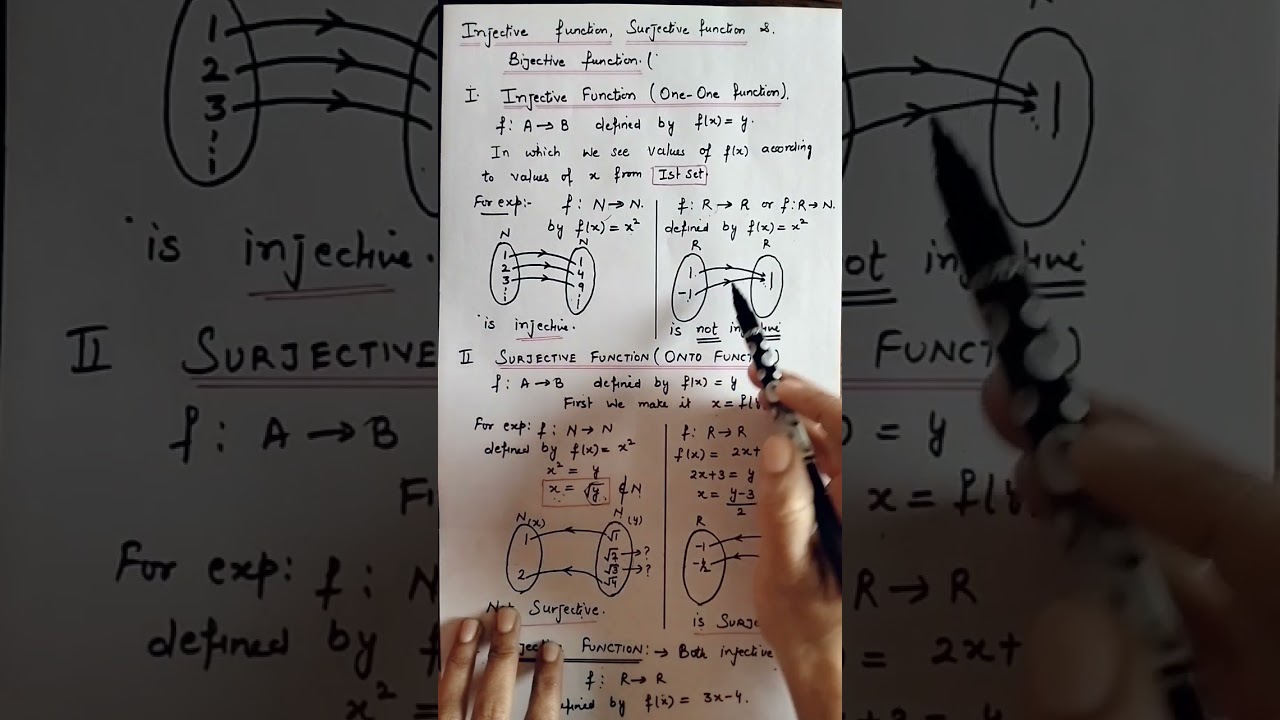 Injective function, Surjective function &
Bijective function. (
I. Injective Function (One-One function).
f: A → B defined by f(x) = y.
In which we see values of f(x) according
to values of x from Ist Set.
For exp:- f: N → N.
by f(x) = x²
N N
1 1
2 4
3 9
is injective.
f: R → R or f: R → N.
defined by f(x) = x²
R R
1 1
-1
is not
II SURJECTIVE FUNCTION (ONTO
f: A → B defined by f(x) = y
First we make it x =
For exp: f: N → N
defined by f(x) = x²
x² = y
x = √y ∉ N
N(x) N(y)
1 √1
√2 → ?
√3 → ?
2 √4
Surjective.
f: R → R
f(x) = 2x+
2x+3 = y
x = y-3
2
R
-1
-½
is
FUNCTION: → Both injective
f: R → R
by f(x) = 3x-4.